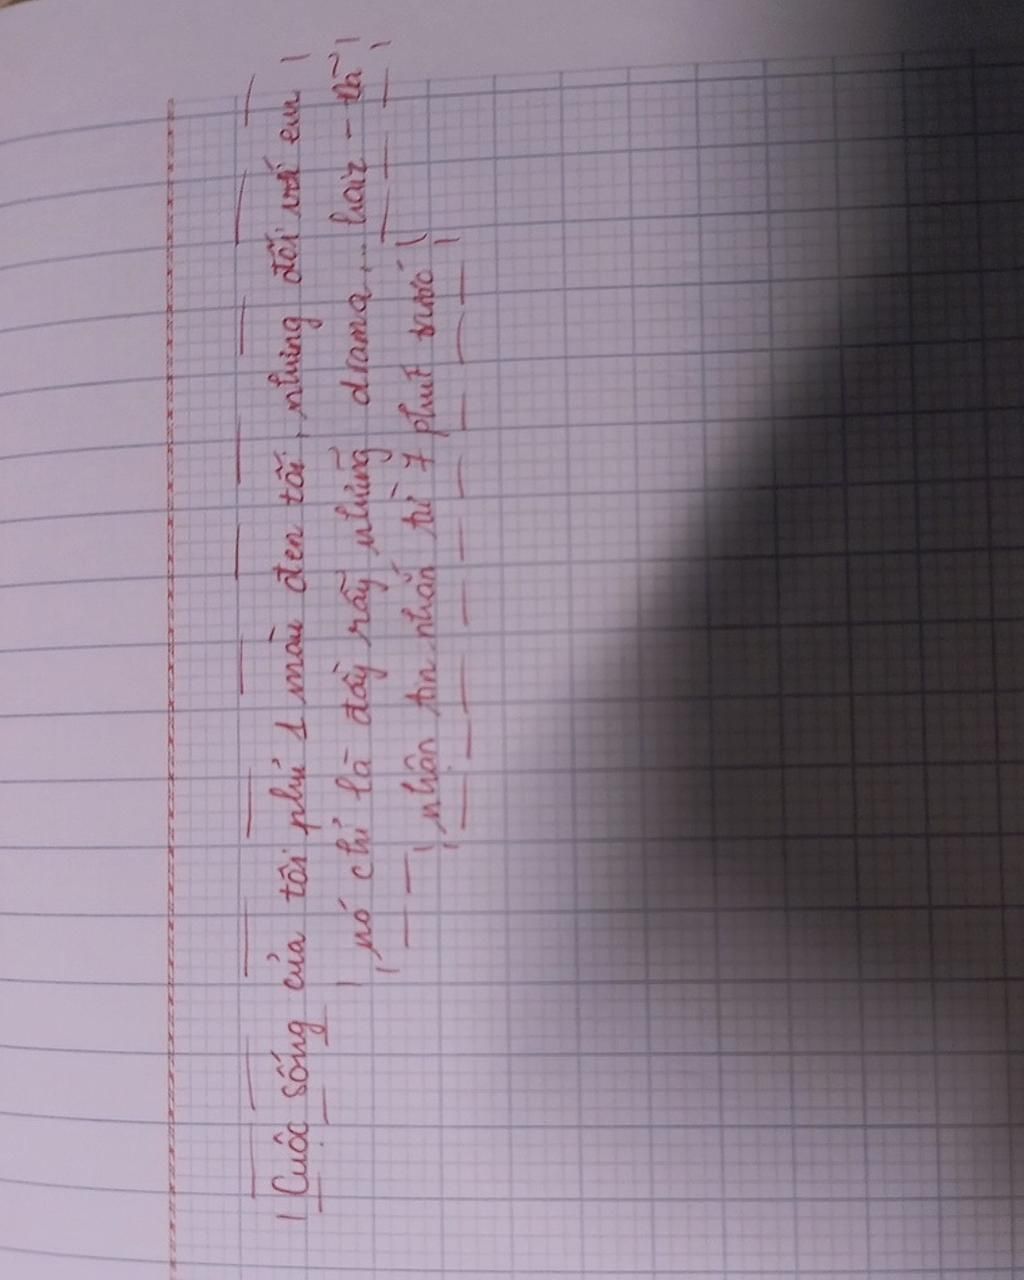 Cuộc sống của tôi phủ 1 màu đen tối, nhưng đối với em
nó chỉ là đầy rẫy những drama,..
nhận tin nhắn từ 7 phút trước